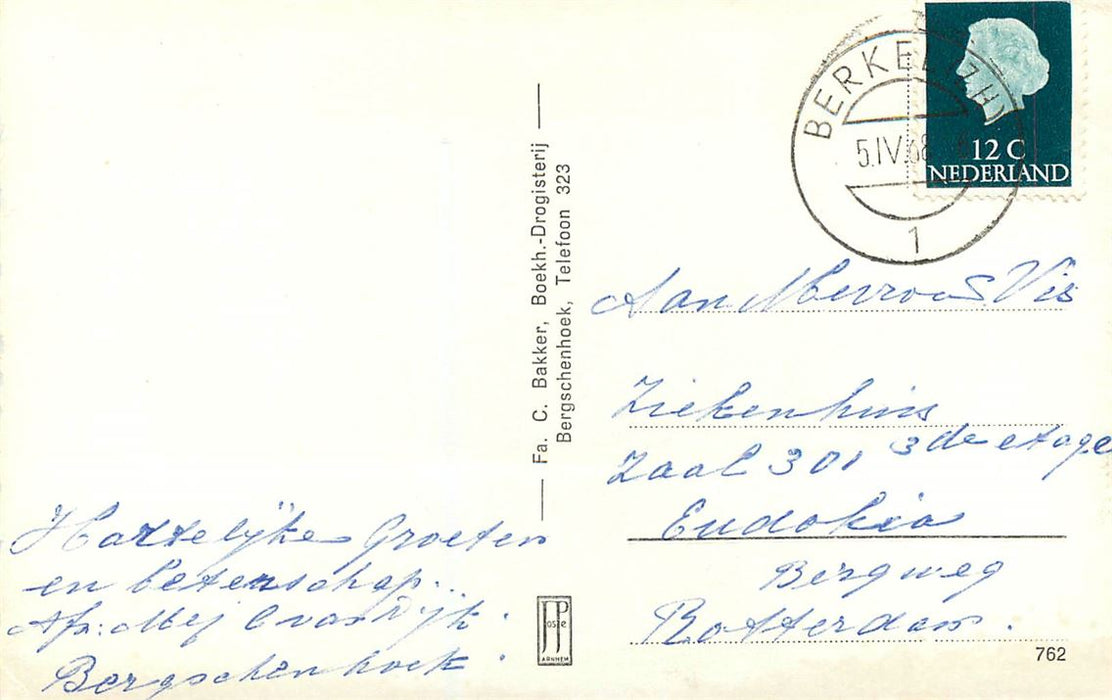 Hartelijke Groeten
en beterschap...
Afz: Mej C van Dijk.
Bergschenhoek.
Fa. C. Bakker, Boekh.-Drogisterij
Bergschenhoek, Telefoon 323
JosPé
ARNHEM
BERKEL (ZH)
5.IV.68
1
12 C
NEDERLAND
Aan Mevrouw Vis
Ziekenhuis
Zaal 301 3de etage
Eudokia
Bergweg
Rotterdam.
762